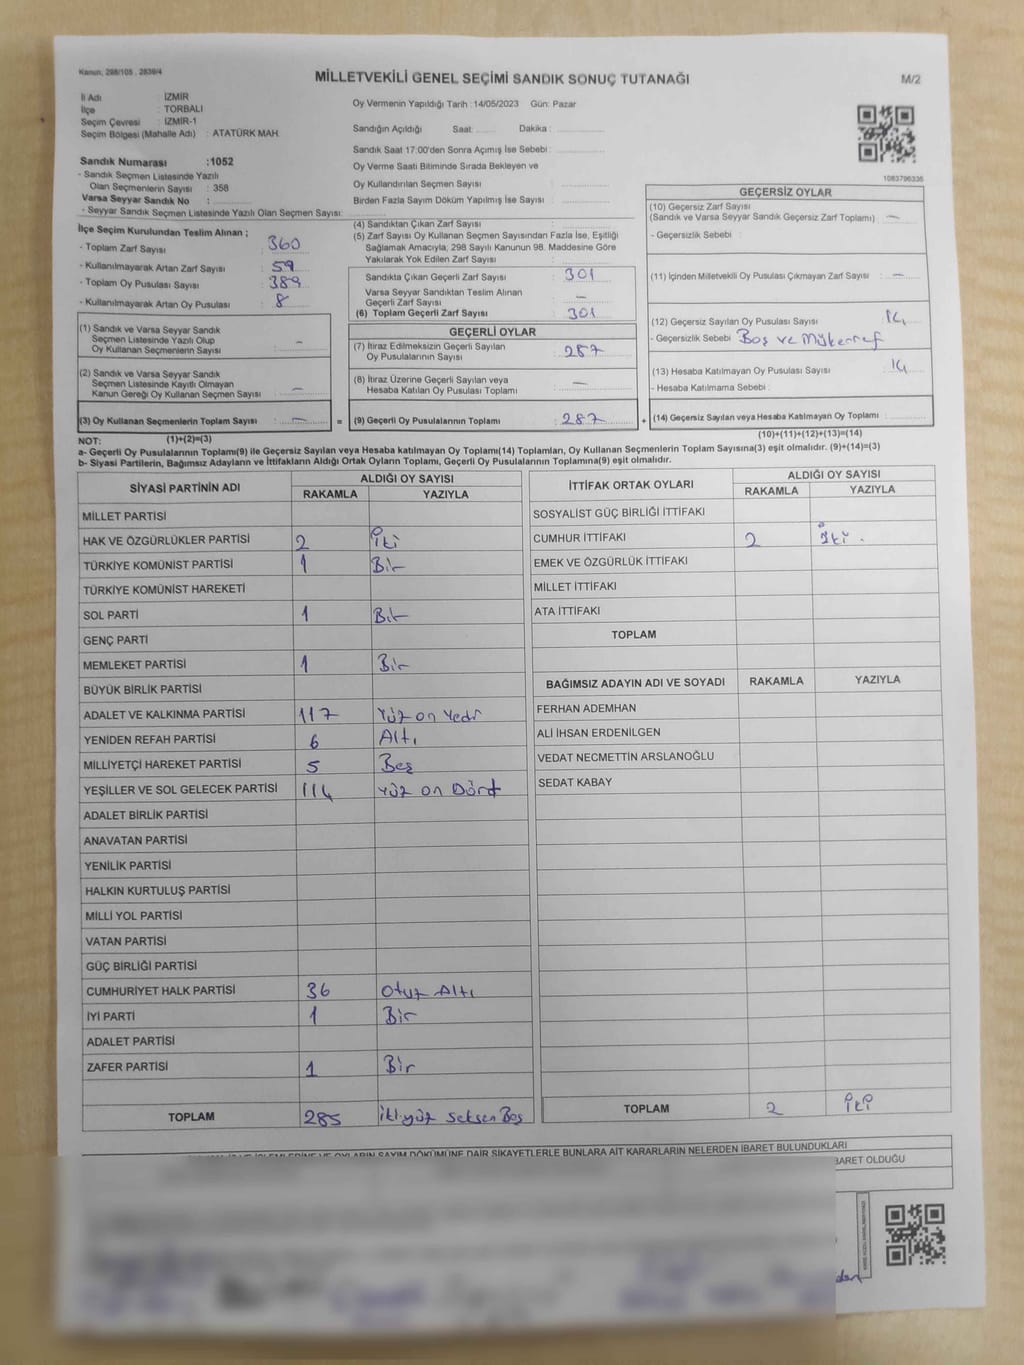 Kanun, 298/105 , 2839/4
MİLLETVEKİLİ GENEL SEÇİMİ SANDIK SONUÇ TUTANAĞI
M/2
İl Adı : İZMİR
İlçe : TORBALI
Seçim Çevresi : İZMİR-1
Seçim Bölgesi (Mahalle Adı) : ATATÜRK MAH.
Sandık Numarası :1052
- Sandık Seçmen Listesinde Yazılı
Olan Seçmenlerin Sayısı : 358
Varsa Seyyar Sandık No :
- Seyyar Sandık Seçmen Listesinde Yazılı Olan Seçmen Sayısı:
Oy Vermenin Yapıldığı Tarih :14/05/2023 Gün: Pazar
Sandığın Açıldığı Saat: Dakika :
Sandık Saat 17:00'den Sonra Açımış İse Sebebi :
Oy Verme Saati Bitiminde Sırada Bekleyen ve
Oy Kullandırılan Seçmen Sayısı :
Birden Fazla Sayım Döküm Yapılmış İse Sayısı :
1083796336
İlçe Seçim Kurulundan Teslim Alınan ;
- Toplam Zarf Sayısı : 360
- Kullanılmayarak Artan Zarf Sayısı : 59
- Toplam Oy Pusulası Sayısı : 389
- Kullanılmayarak Artan Oy Pusulası : 8
(1) Sandık ve Varsa Seyyar Sandık
Seçmen Listesinde Yazılı Olup
Oy Kullanan Seçmenlerin Sayısı : –
(2) Sandık ve Varsa Seyyar Sandık
Seçmen Listesinde Kayıtlı Olmayan
Kanun Gereği Oy Kullanan Seçmen Sayısı : –
(3) Oy Kullanan Seçmenlerin Toplam Sayısı : –
(4) Sandıktan Çıkan Zarf Sayısı :
(5) Zarf Sayısı Oy Kullanan Seçmen Sayısından Fazla İse, Eşitliği
Sağlamak Amacıyla, 298 Sayılı Kanunun 98. Maddesine Göre
Yakılarak Yok Edilen Zarf Sayısı :
Sandıkta Çıkan Geçerli Zarf Sayısı : 301
Varsa Seyyar Sandıktan Teslim Alınan
Geçerli Zarf Sayısı : –
(6) Toplam Geçerli Zarf Sayısı : 301
GEÇERLİ OYLAR
(7) İtiraz Edilmeksizin Geçerli Sayılan
Oy Pusulalarının Sayısı : 287
(8) İtiraz Üzerine Geçerli Sayılan veya
Hesaba Katılan Oy Pusulaları Toplamı : –
= (9) Geçerli Oy Pusulalarının Toplamı : 287 +
GEÇERSİZ OYLAR
(10) Geçersiz Zarf Sayısı
(Sandık ve Varsa Seyyar Sandık Geçersiz Zarf Toplamı) : –
- Geçersizlik Sebebi :
(11) İçinden Milletvekili Oy Pusulası Çıkmayan Zarf Sayısı : –
(12) Geçersiz Sayılan Oy Pusulası Sayısı : 14
- Geçersizlik Sebebi : Boş ve Mükerref
(13) Hesaba Katılmayan Oy Pusulası Sayısı : 14
- Hesaba Katılmama Sebebi :
(14) Geçersiz Sayılan veya Hesaba Katılmayan Oy Toplamı :
NOT: (1)+(2)=(3)
(10)+(11)+(12)+(13)=(14)
a- Geçerli Oy Pusulasının Toplamı(9) ile Geçersiz Sayılan veya Hesaba katılmayan Oy Toplamı(14) Toplamları, Oy Kullanan Seçmenlerin Toplam Sayısına(3) eşit olmalıdır. (9)+(14)=(3)
b- Siyasi Partilerin, Bağımsız Adayların ve İttifakların Aldığı Ortak Oyların Toplamı, Geçerli Oy Pusulasının Toplamına(9) eşit olmalıdır.
SİYASİ PARTİNİN ADI ALDIĞI OY SAYISI
RAKAMLA YAZIYLA
MİLLET PARTİSİ
HAK VE ÖZGÜRLÜKLER PARTİSİ 2 İki
TÜRKİYE KOMÜNİST PARTİSİ 1 Bir
TÜRKİYE KOMÜNİST HAREKETİ
SOL PARTİ 1 Bir
GENÇ PARTİ
MEMLEKET PARTİSİ 1 Bir
BÜYÜK BİRLİK PARTİSİ
ADALET VE KALKINMA PARTİSİ 117 Yüz on Yedi
YENİDEN REFAH PARTİSİ 6 Altı
MİLLİYETÇİ HAREKET PARTİSİ 5 Beş
YEŞİLLER VE SOL GELECEK PARTİSİ 114 Yüz on Dört
ADALET BİRLİK PARTİSİ
ANAVATAN PARTİSİ
YENİLİK PARTİSİ
HALKIN KURTULUŞ PARTİSİ
MİLLİ YOL PARTİSİ
VATAN PARTİSİ
GÜÇ BİRLİĞİ PARTİSİ
CUMHURİYET HALK PARTİSİ 36 Otuz Altı
İYİ PARTİ 1 Bir
ADALET PARTİSİ
ZAFER PARTİSİ 1 Bir
TOPLAM 285 ikiyüz seksen Beş
İTTİFAK ORTAK OYLARI ALDIĞI OY SAYISI
RAKAMLA YAZIYLA
SOSYALİST GÜÇ BİRLİĞİ İTTİFAKI
CUMHUR İTTİFAKI 2 İki .
EMEK VE ÖZGÜRLÜK İTTİFAKI
MİLLET İTTİFAKI
ATA İTTİFAKI
TOPLAM
BAĞIMSIZ ADAYIN ADI VE SOYADI RAKAMLA YAZIYLA
FERHAN ADEMHAN
ALİ İHSAN ERDENİLGEN
VEDAT NECMETTİN ARSLANOĞLU
SEDAT KABAY
TOPLAM 2 İki
SAYIM DÖKÜMÜNE DAİR ŞİKAYETLERLE BUNLARA AİT KARARLARIN NELERDEN İBARET BULUNDUKLARI
BARET OLDUĞU